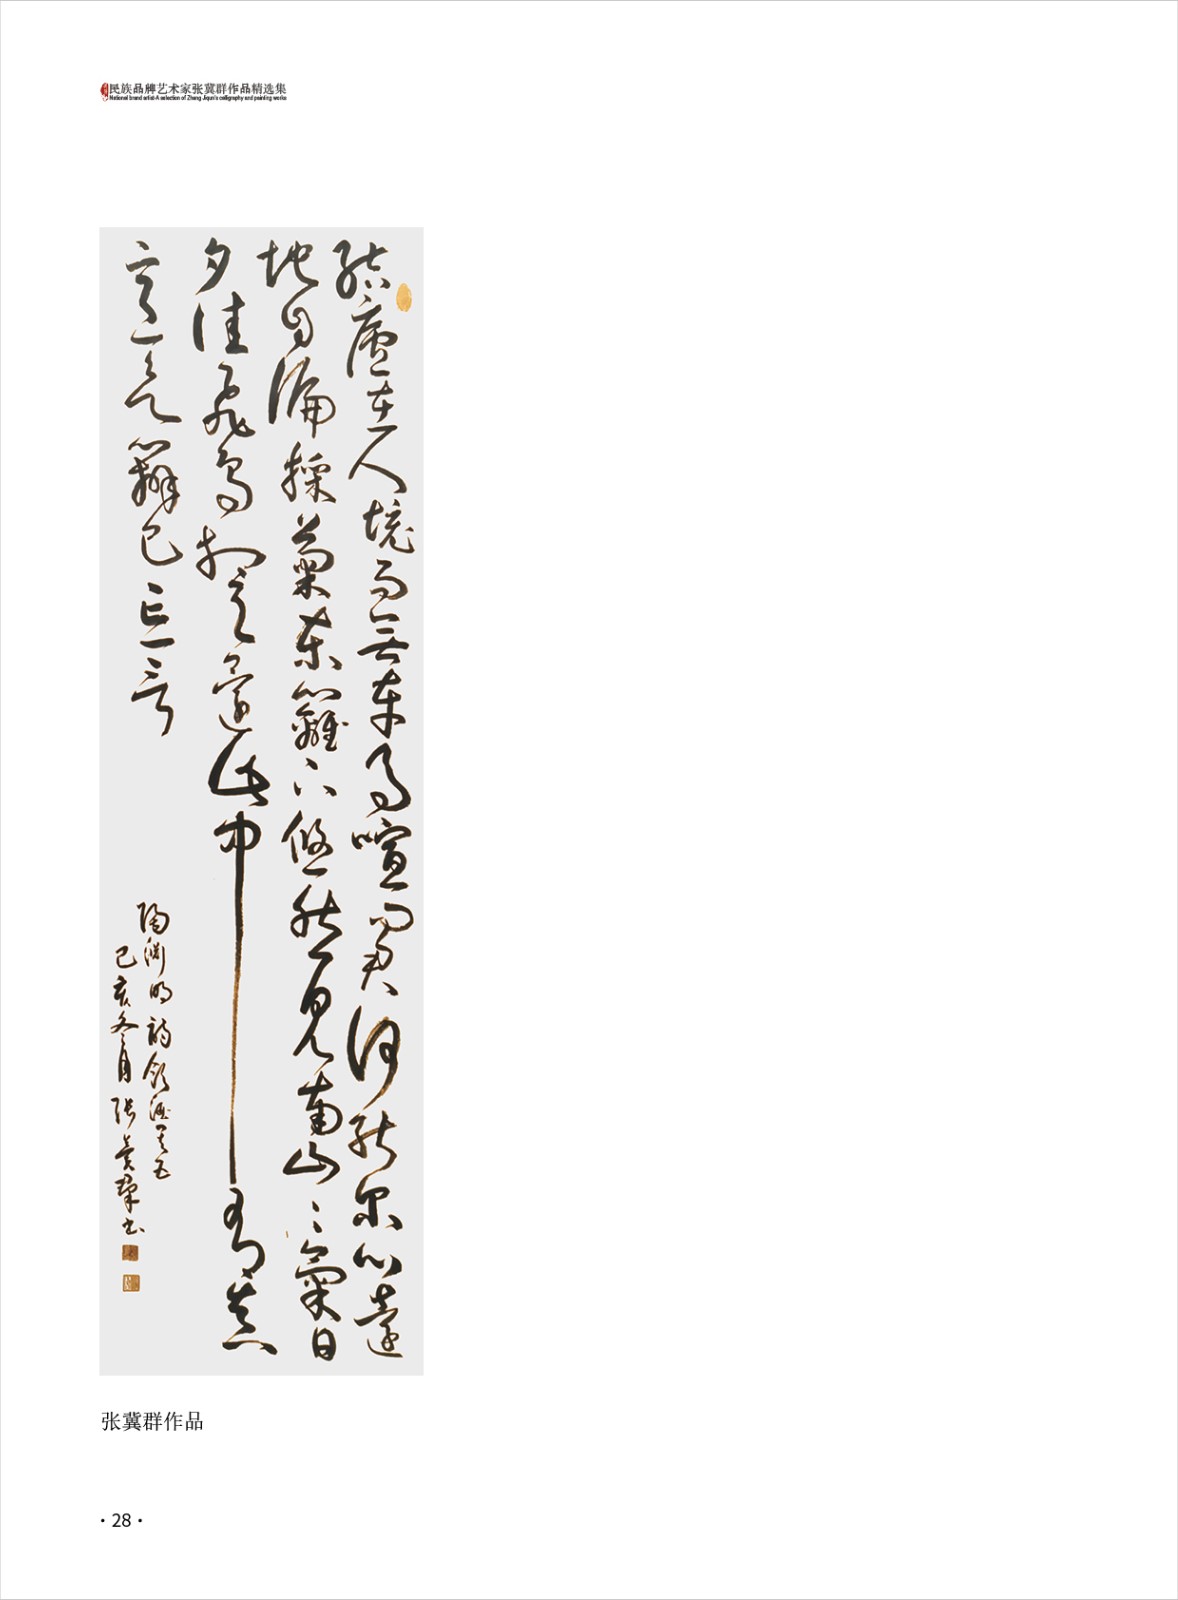 民族品牌艺术家张冀群作品精选集
National brand artist-A selection of Zhang Jiqun's calligraphy and painting works
結廬在人境而無車馬喧問君何能尔心遠
地自偏採菊東籬下悠然見南山〻氣日
夕佳飛鳥相與還此中有真
意欲辨已忘言
陶淵明詩飲酒其五
己亥冬月張冀群書
张冀群作品
·28·